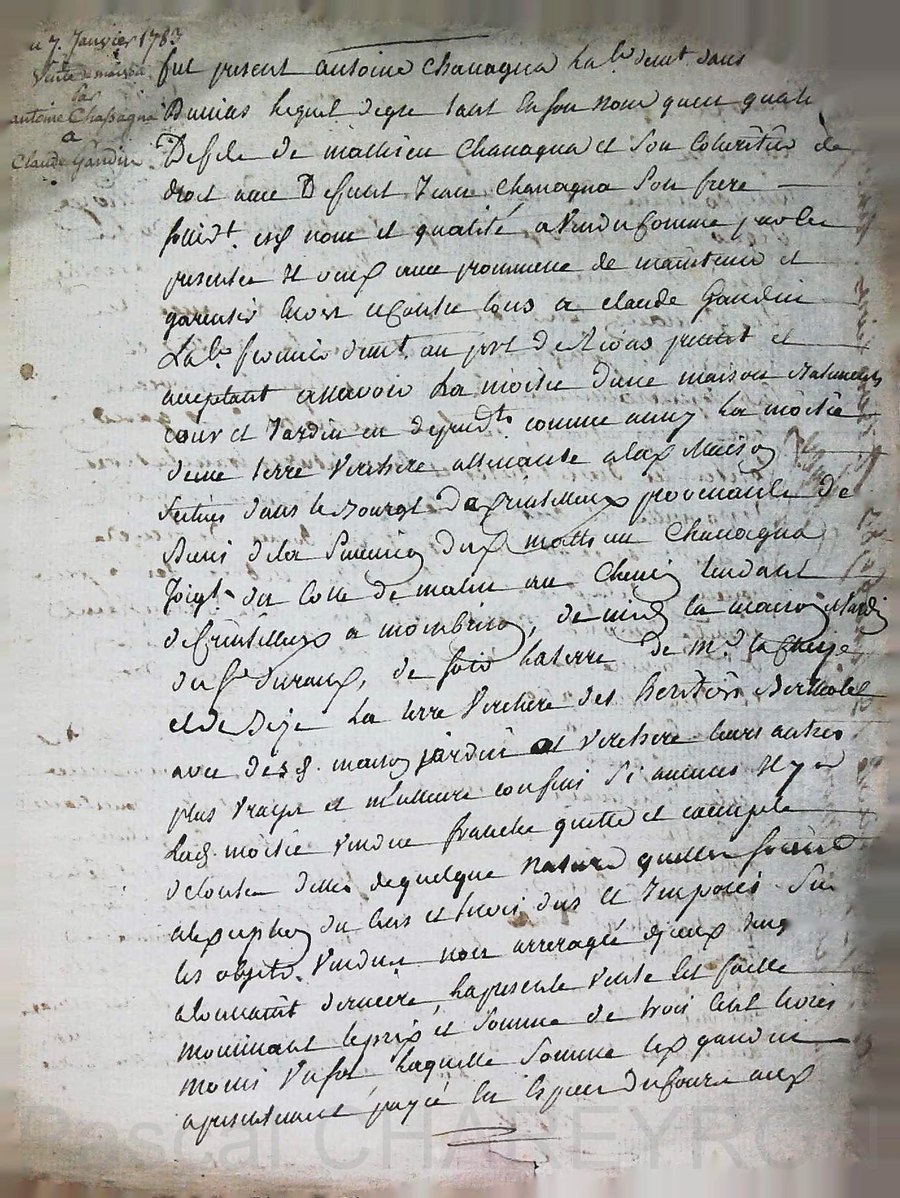 u 7. Janvier 1783
Vente de maison
par
antoine Chassagna
a
Claude Gaudin
fut present antoine Chanagna Lab.r demt. dans
lequel degre tant En son nom quen qualité
De de mathieu Chanagna et Son Coheritier de
droit avec Defunt Jean Chanagna Son frere
nom et qualité, a Vendu Comme par les
presentes Il vend avec promesse de maintenir et
garentir Envers et Contre tous a Claude Gaudin
Lab.r demt. au port de present et
acceptant assavoir La moitié dune maison
cour et Jardin en dependts. comme aussy La moitié
dune terre Verchere attenante a lad. Maison
Situés dans le Bourg De provenants de
de la dud. mathieu Chanagna
Joigt. du Cote de matin au Chemin tendant
de a monbrison, de midy la maison et Jardin
du Sr. , de soir La terre de Mr. la
et de Bize La terre Verchere des heritiers
avec desd. maison jardin et Verchere leurs autres
plus vrays et meilleurs confins Si aucuns Il y a
Lad. moitié vendue franche quitte et exempte
de toutes dettes de quelque nature quelles soient
a lexception du Cens et Servis dus et Imposés Sur
les objets Vendus non arreragés depuis
a la derniere, La presente vente Est faitte
moiennant le prix et Somme de trois Cent livres
moins Laquelle Somme led. gaudin
a presentement payé En Especes de Cours aud.
Pascal CHAREYRON